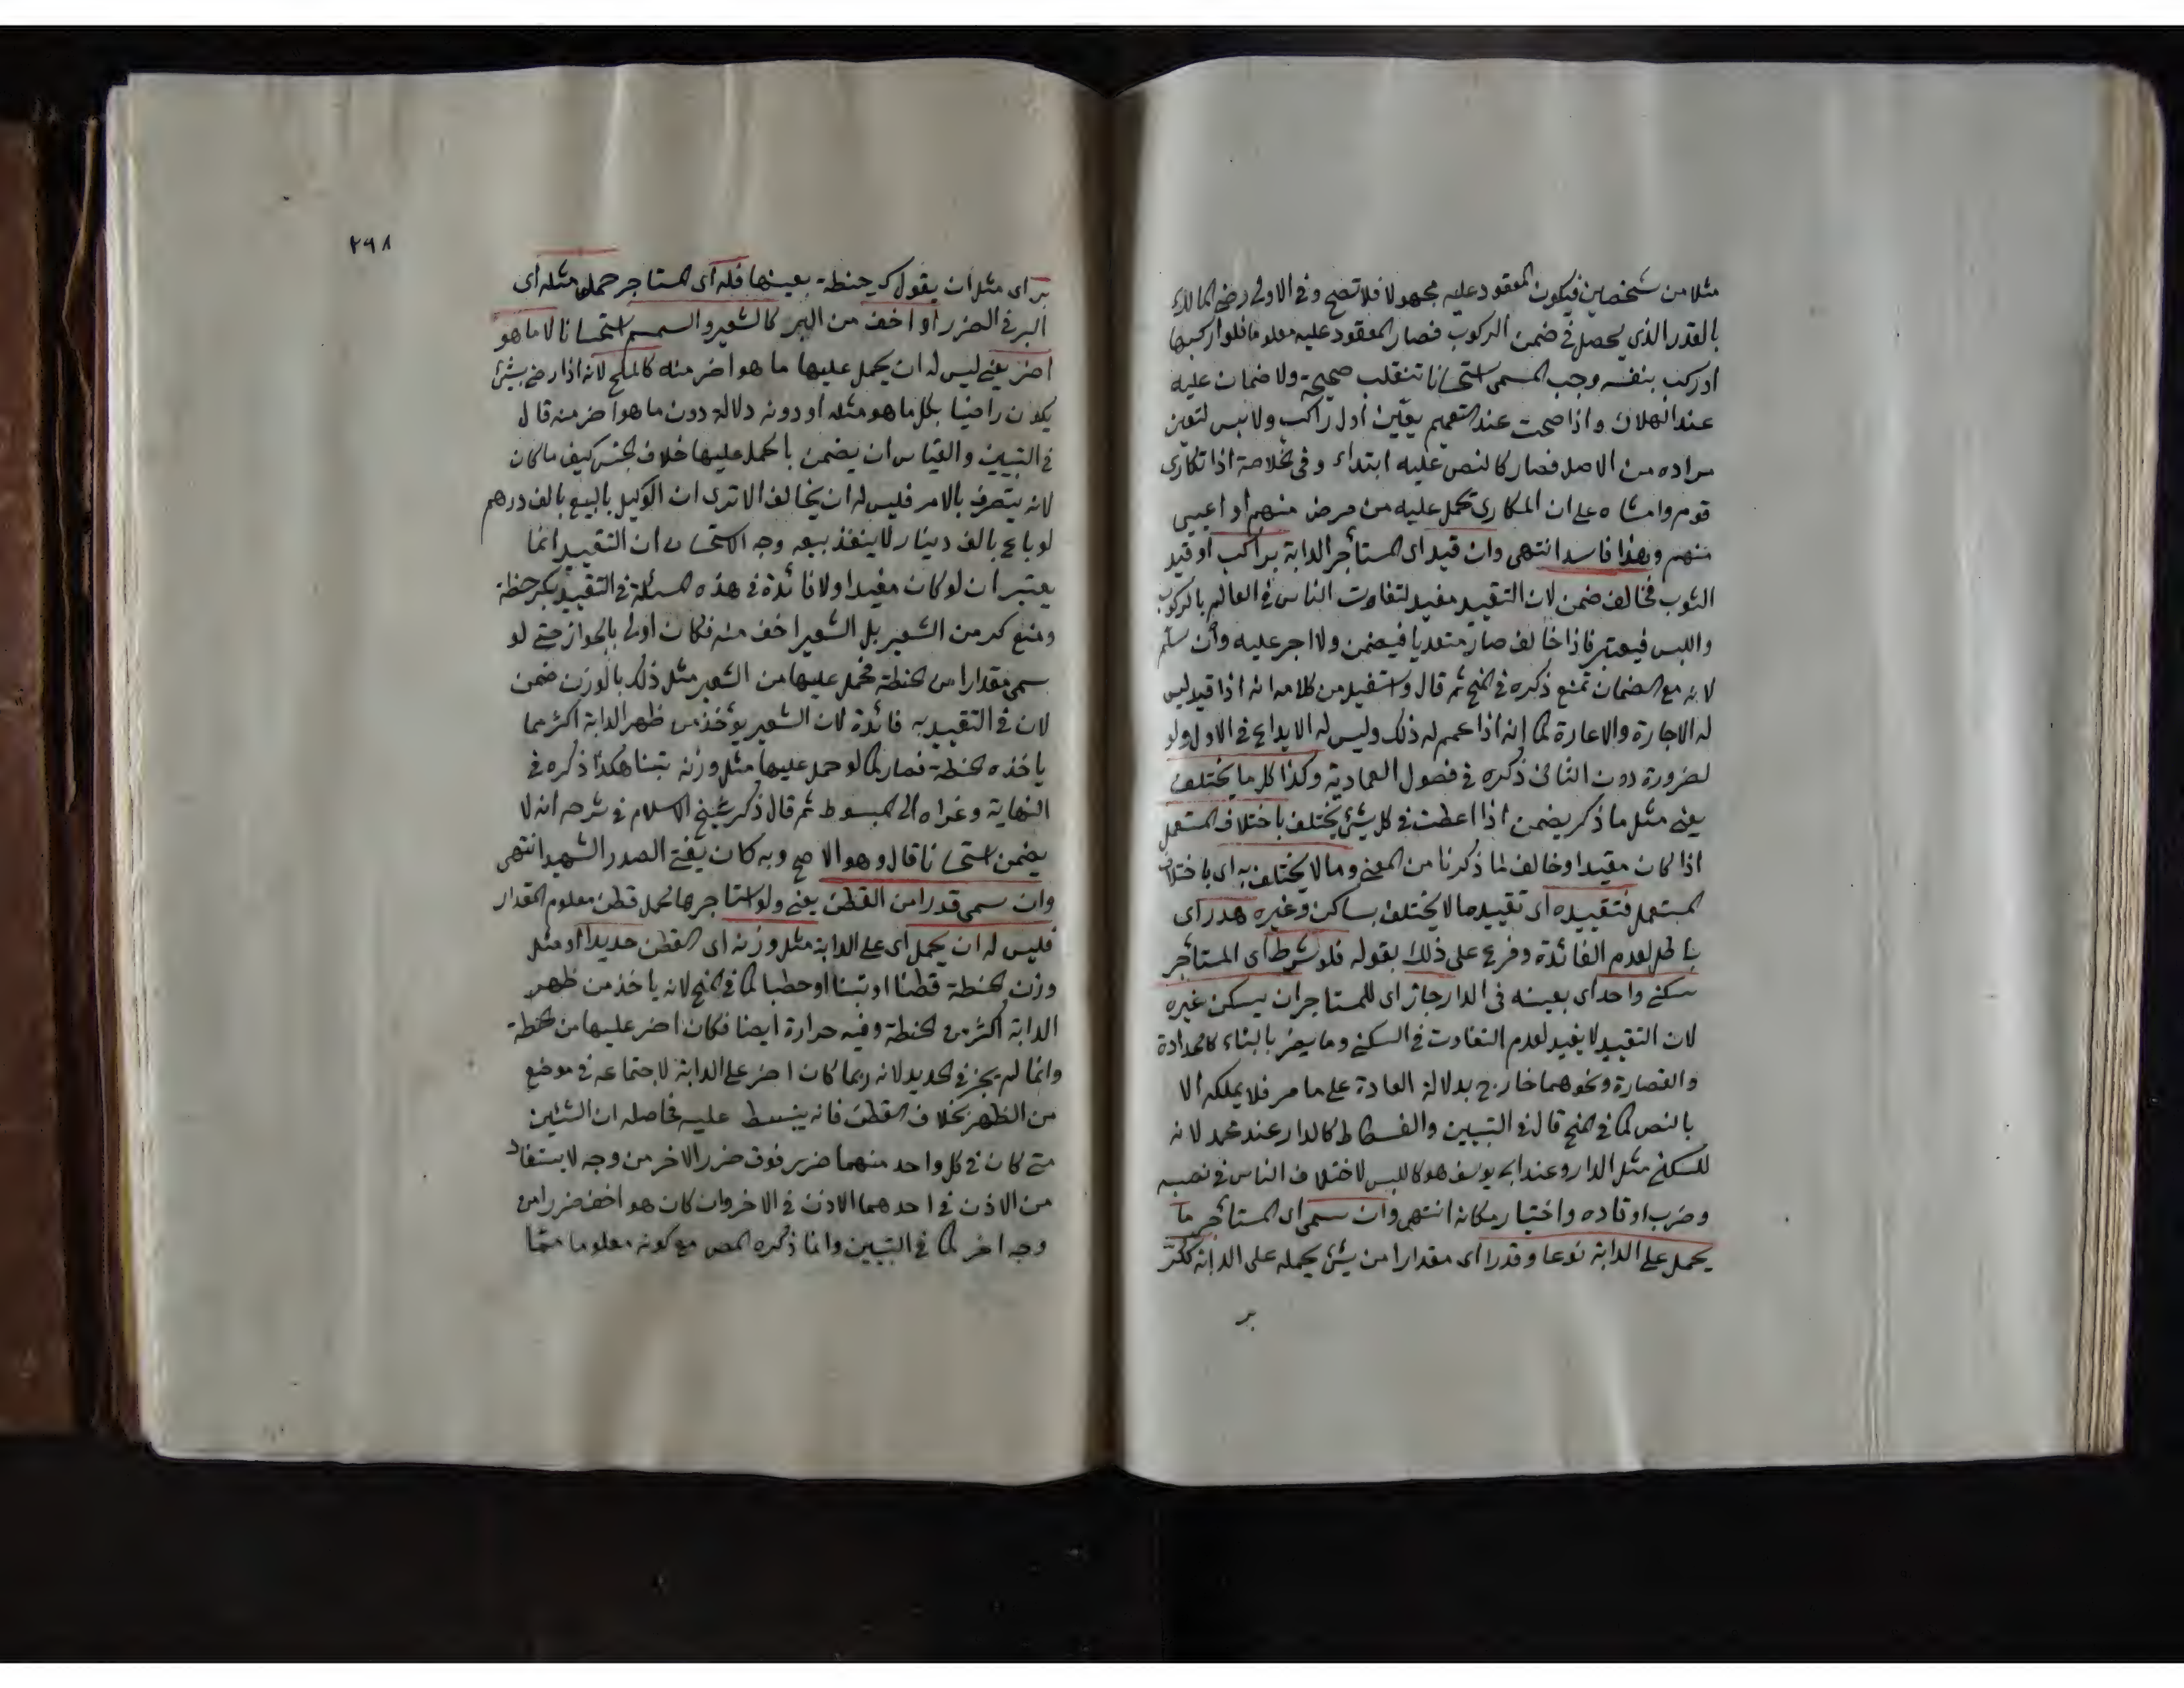 مثلا من شخصين فيكون المعقود عليه مجهولا فلا تصح وفي الاولى رضي المالك
بالقدر الذي يحصل في ضمن الركوب فصار المعقود عليه معلوما فلو اركبها
او ركب بنفسه وجب المسمى استحسانا تنقلب صحيحة ولا ضمان عليه
عند الهلاك واذا صحت عند التعميم يعين اول راكب ولابس لتعين
مراده من الاصل فصار كالنص عليه ابتداء وفي الخلاصة اذا تكارى
قوم وامشاه على ان المكاري يحمل عليه من مرض منهم او اعيى
منهم وهذا فاسد انتهى وان قيد اى المستأجر الدابة براكب او قيد
الثوب فخالف ضمن لان التقييد مفيد لتفاوت الناس في العالم بالركوب
واللبس فيعتبر فاذا خالف صار متعديا فيضمن ولا اجر عليه وان سلم
لانه مع الضمان تمنع ذكره في المنح ثم قال واستفيد من كلامه انه اذا قيد ليس
له الاجارة والاعارة كما انه اذا عمم له ذلك وليس له الايداع في الاول ولو
لضرورة دون الثاني ذكره في فصول العمادية وكذا كل ما يختلف
يعني مثل ما ذكر يضمن اذا عطبت في كل شئ يختلف باختلاف المستعمل
اذا كان مقيدا وخالف لما ذكرنا من المعنى وما لا يختلف به اى باختلاف
المستعمل فتقييده اى تقييد ما لا يختلف بساكن وغيره هدر اى
باطل لعدم الفائدة وفرع على ذلك بقوله فلو شرط اى المستأجر
سكنى واحد اى بعينه في الدار جاز اى للمستاجر ان يسكن غيره
لان التقييد لا يفيد لعدم التفاوت في السكنى وما يضر بالبناء كالحدادة
والقصارة ونحوهما خارج بدلالة العادة على ما مر فلا يملكه الا
بالنص كما في المنح قال في التبيين والفسطاط كالدار عند محمد لانه
للسكنى مثل الدار وعند ابى يوسف هو كاللبس لاختلاف الناس في نصبه
وضرب اوتاده واختيار مكانه انتهى وان سمى اى المستأجر ما
يحمل على الدابة نوعا وقدرا اى مقدارا من شئ يحمله على الدابة ككر
بر
٢٩٨
بر اى مثل ان يقول كر حنطة بعينها فله اى المستاجر حمل مثله اى
البر في الضرر او اخف من البر كالشعير والسمسم استحسانا لا ما هو
اضر يعني ليس له ان يحمل عليها ما هو اضر منه كالملح لانه اذا رضي بشئ
يكون راضيا بكل ما هو مثله او دونه دلالة دون ما هو اضر منه قال
في التبيين والقياس ان يضمن بالحمل عليها خلاف الجنس كيف ما كان
لانه يتصرف بالامر فليس له ان يخالف الا ترى ان الوكيل بالبيع بالف درهم
لو باع بالف دينار لا ينفذ بيعه وجه الاستحسان ان التقييد انما
يعتبر ان لو كان مفيدا ولا فائدة في هذه المسئلة في التقييد بكر حنطة
ومنع كر من الشعير بل الشعير اخف منه فكان اولى بالجواز حتى لو
سمى مقدارا من الحنطة فحمل عليها من الشعير مثل ذلك بالوزن ضمن
لان في التقييد به فائدة لان الشعير يؤخذ من ظهر الدابة اكثر مما
ياخذه الحنطة فصار كما لو حمل عليها مثل وزنه تبنا هكذا ذكره في
النهاية وعزاه الى المبسوط ثم قال ذكر شيخ الاسلام في شرحه انه لا
يضمن استحسانا قال وهو الاصح وبه كان يفتي الصدر الشهيد انتهى
وان سمى قدرا من القطن يعني ولو استاجرها لحمل قطن معلوم المقدار
فليس له ان يحمل اى على الدابة مثل وزنه اى القطن حديدا او مثل
وزن الحنطة قطنا او تبنا او حطبا كما في المنح لانه ياخذ من ظهر
الدابة اكثر من الحنطة وفيه حرارة ايضا فكان اضر عليها من الحنطة
وانما لم يجز في الحديد لانه ربما كان اضر على الدابة لاجتماعه في موضع
من الظهر بخلاف القطن فانه ينبسط عليه فحاصله ان الشيئين
متى كان في كل واحد منهما ضرر فوق ضرر الاخر من وجه لا يستفاد
من الاذن في احدهما الاذن في الاخر وان كان هو اخف ضررا من
وجه اخر كما في التبيين وانما ذكره المص مع كونه معلوما مما